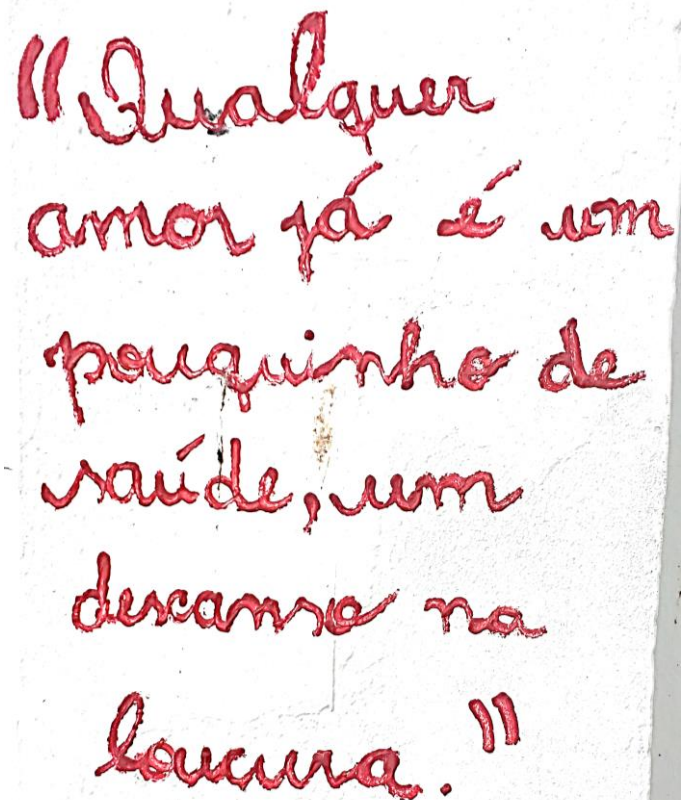 "Qualquer
amor já é um
pouquinho de
saúde, um
descanso na
loucura."